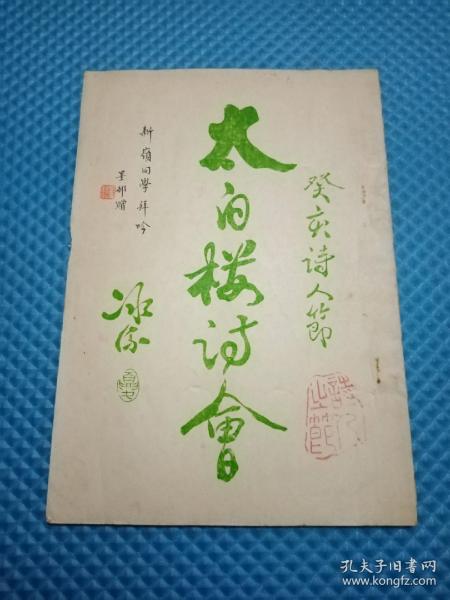 癸亥诗人節
太白楼诗會
新嶺同學拜吟
墨邨赠
孔夫子旧书网
www.kongfz.com